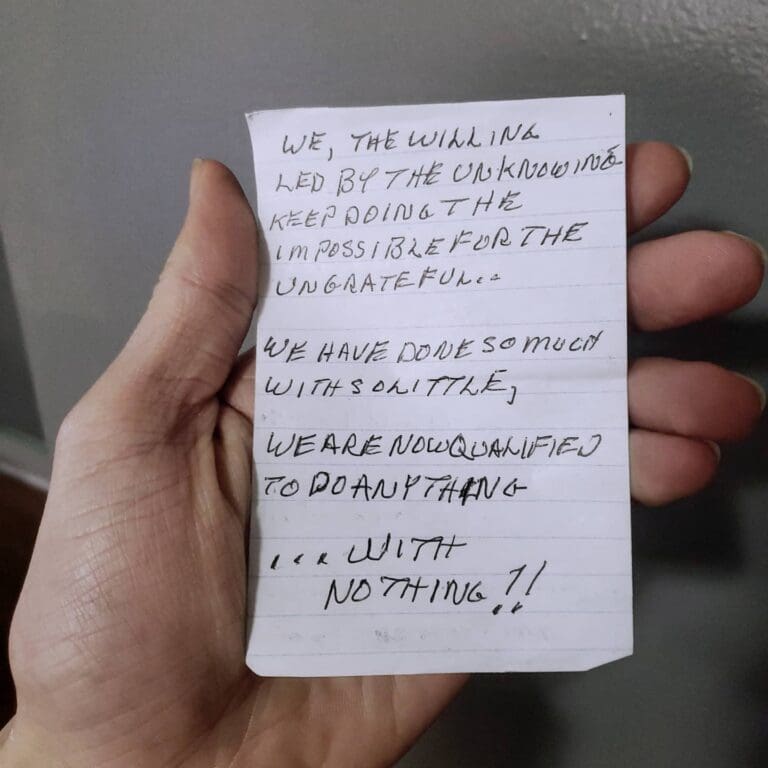 WE, THE WILLING
LED BY THE UNKNOWING
KEEP DOING THE
IMPOSSIBLE FOR THE
UNGRATEFUL..
WE HAVE DONE SO MUCH
WITH SO LITTLE,
WE ARE NOW QUALIFIED
TO DO ANYTHING
...WITH
NOTHING!!